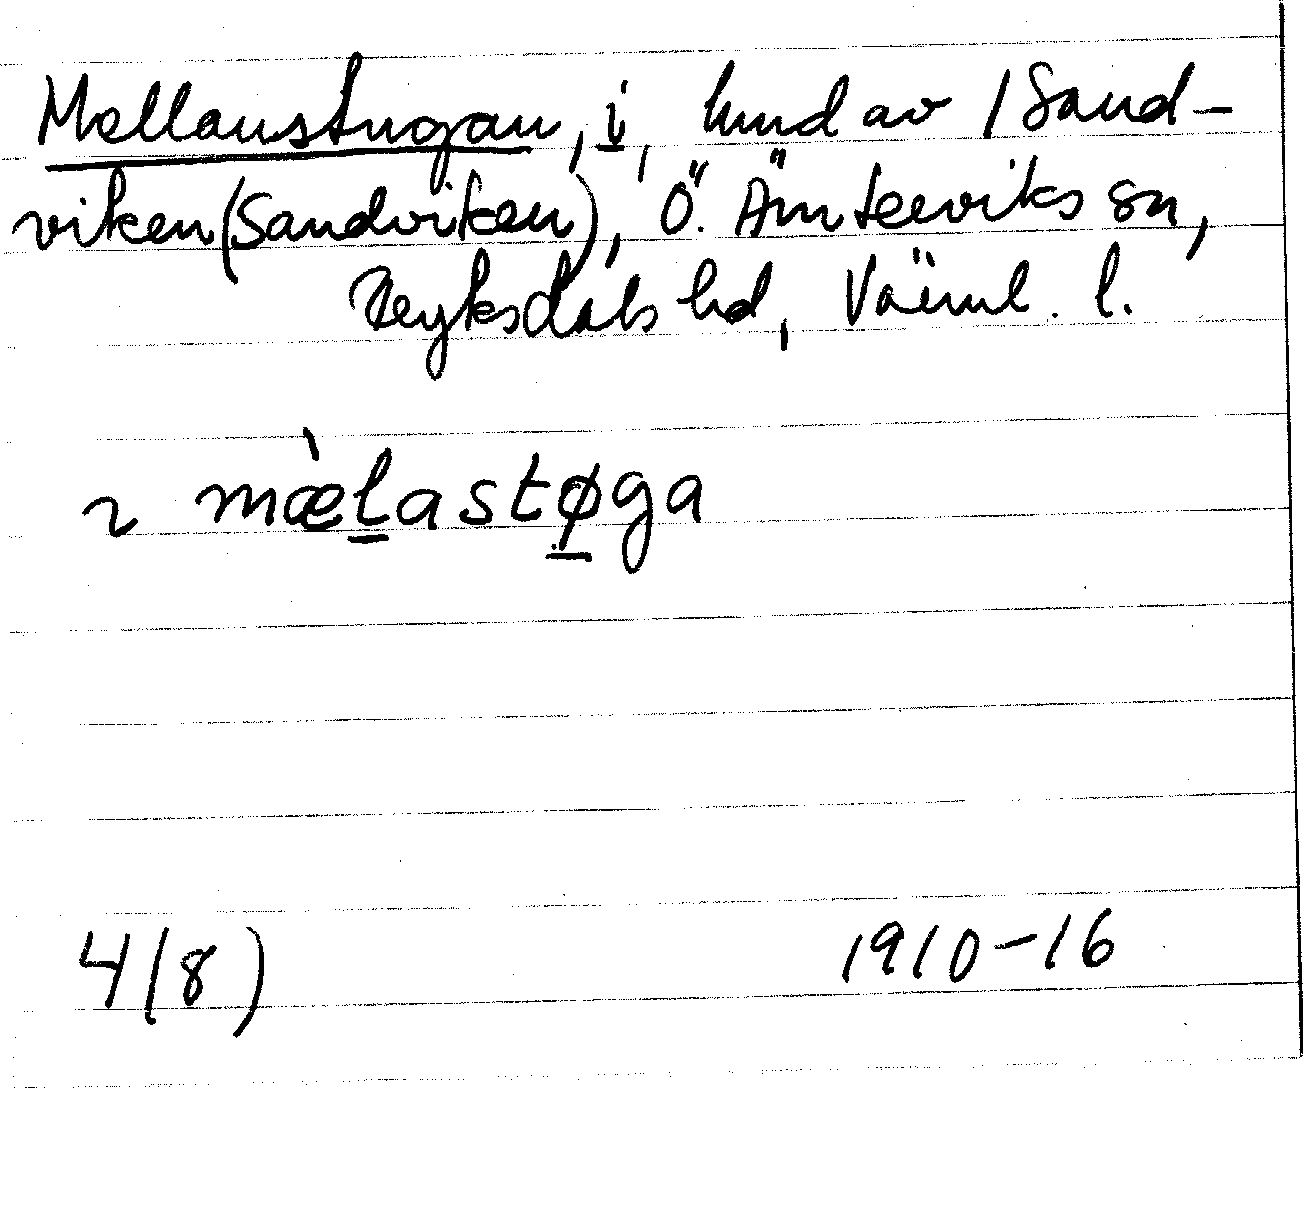 Mellanstugan, i, hmd av 1 Sand-
viken (Sandviken), Ö. Ämterviks sn,
Fryksdals hd, Värml. l.
ɩ mæ̀lastøga
4(8) 1910-16